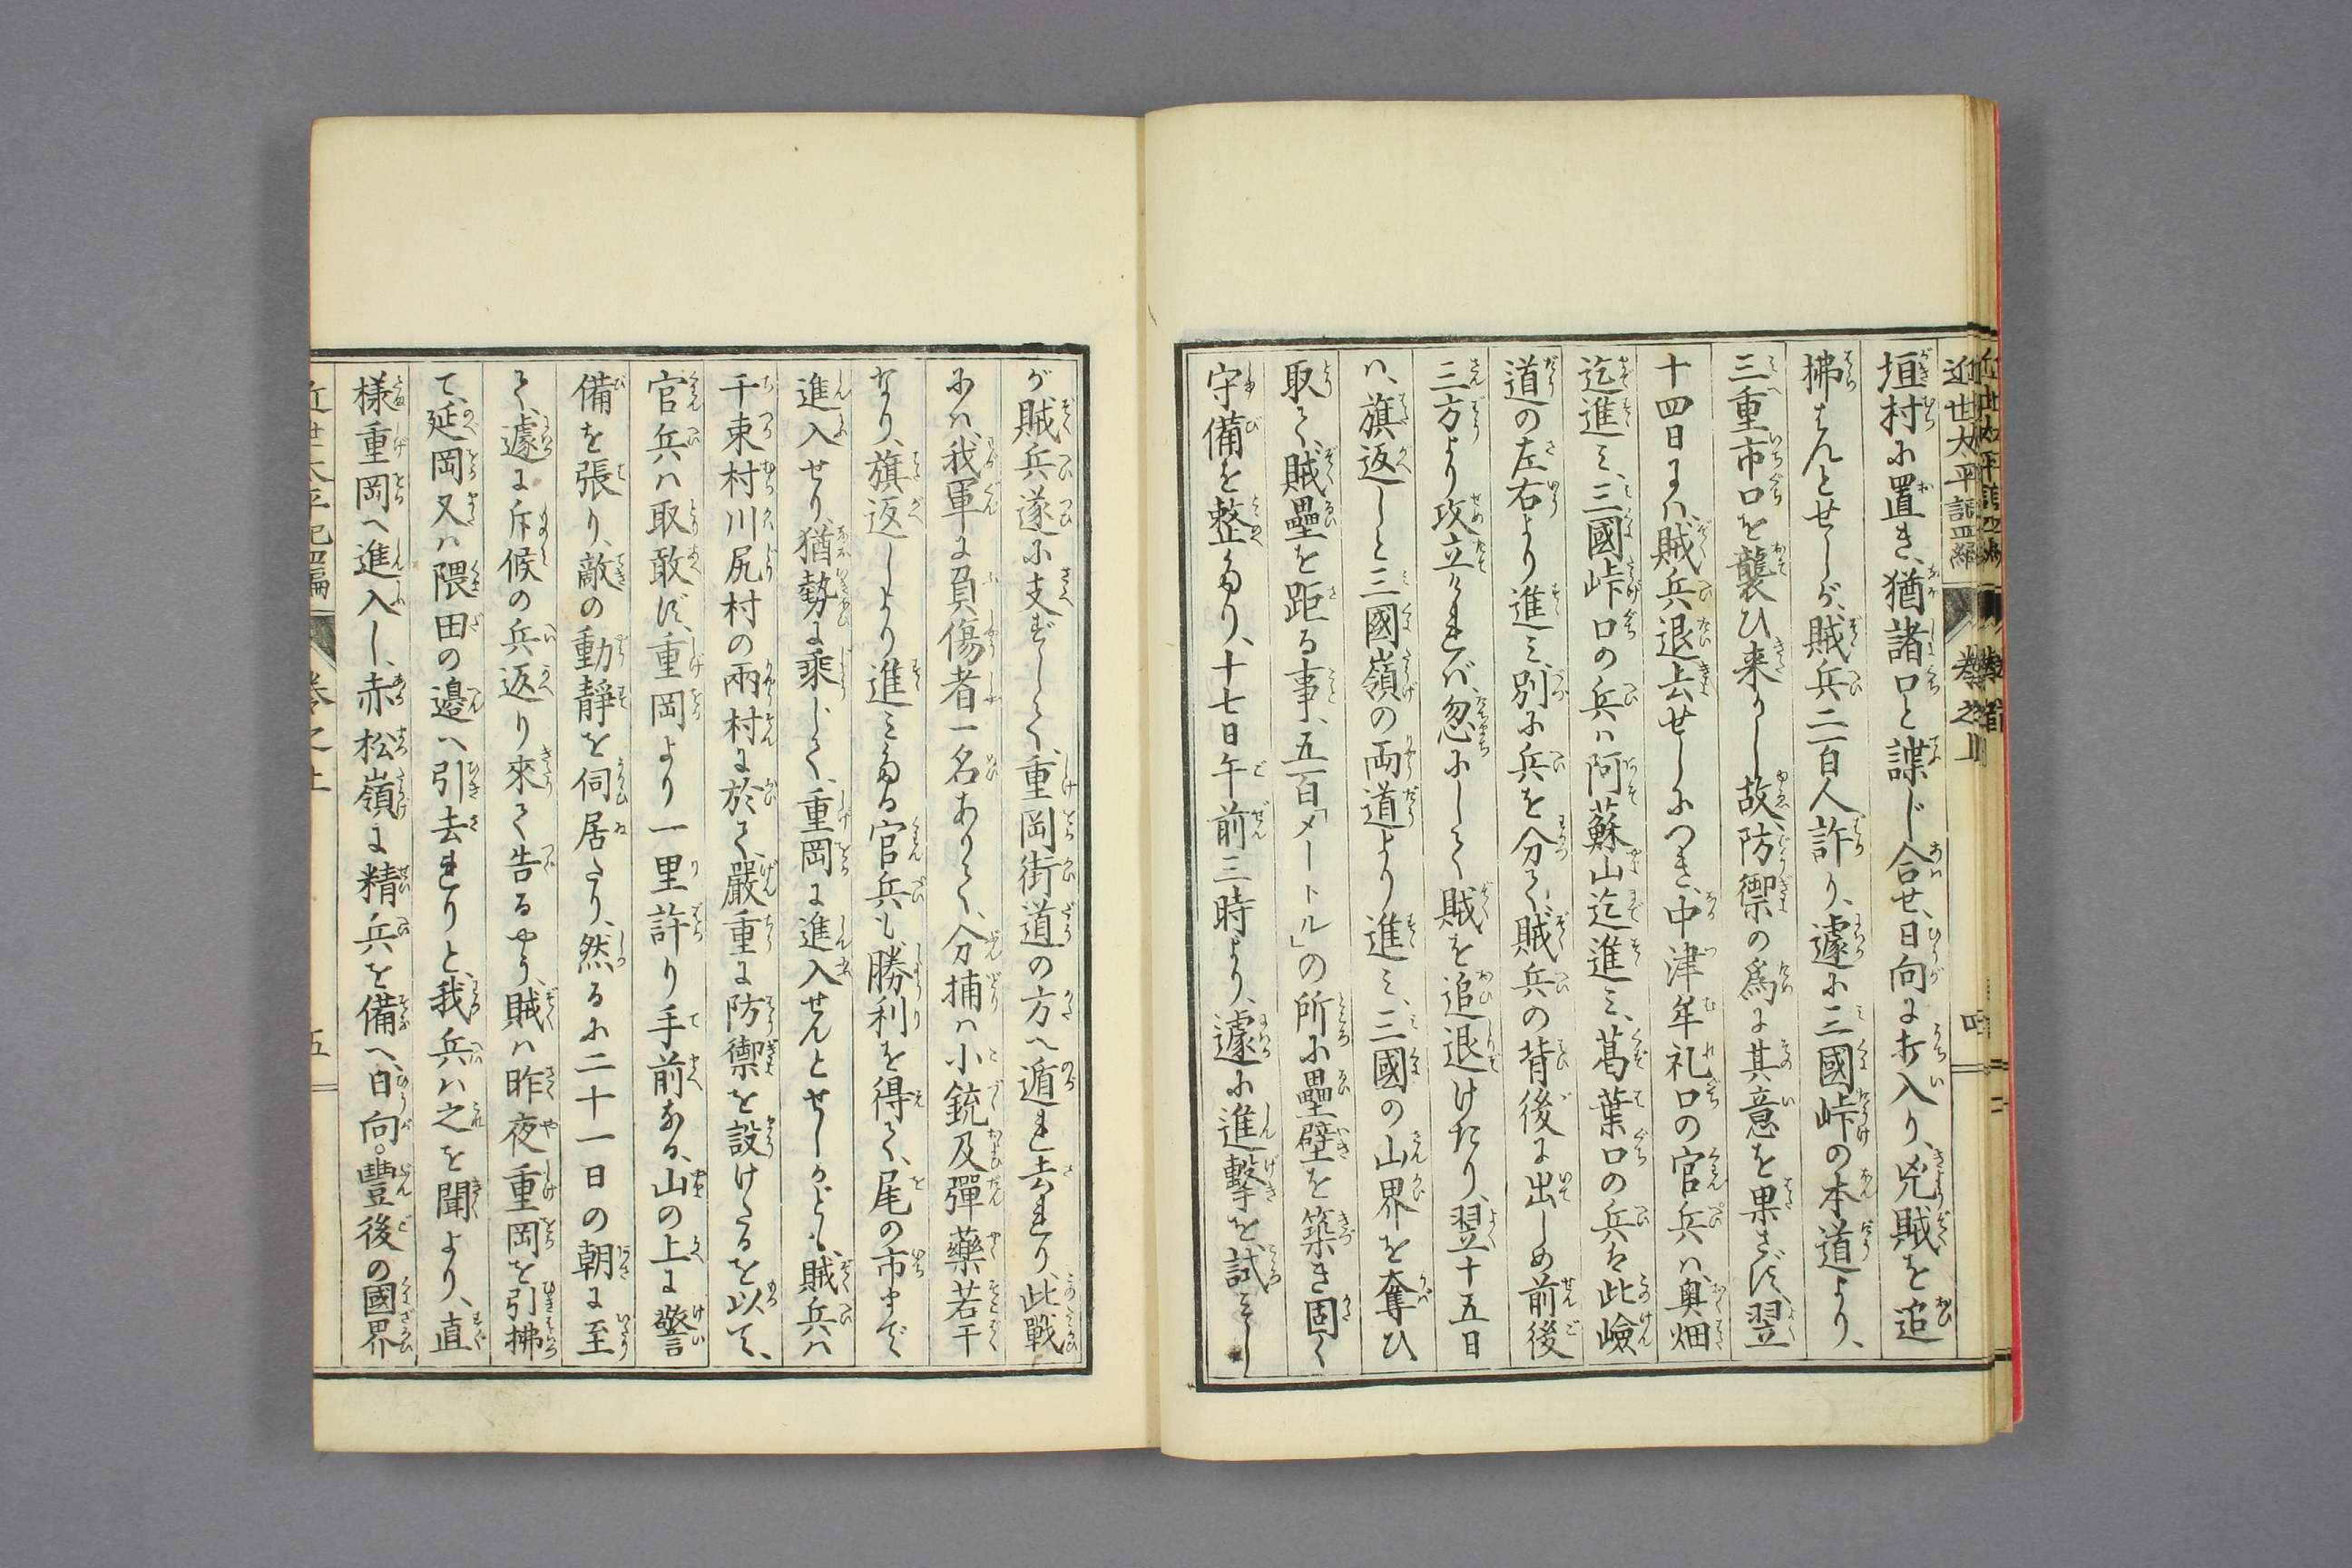 垣村に置き、猶諸口と諜じ合せ、日向に打入り、兇賊を追
拂はんとせしが、賊兵二百人許り、遽に三國峠の本道より、
三重市口を襲ひ来りし故、防禦の爲に其意を果さず、翌
十四日には、賊兵退去せしにつき、中津牟礼口の官兵は、奥畑
迄進み、三國峠口の兵は阿蘇山迄進み、葛葉口の兵は此嶮
道の左右より進み、別に兵を分て、賊兵の背後に出しめ前後
三方より攻立ければ、忽にして賊を追退けたり、翌十五日
は、旗返しと三國嶺の両道より進み、三國の山界を奪ひ
取て、賊壘を距る事、五百「メートル」の所に壘壁を築き固く
守備を整たり、十七日午前三時より、遽に進撃を試みし
が賊兵遂に支ずして、重岡街道の方へ遁れ去れり、此戰
には、我軍に負傷者一名ありて、分捕は小銃及彈藥若干
なり、旗返しより進みたる官兵も勝利を得て、尾の市まで
進入せり、猶勢に乘じて、重岡に進入せんとせしかども、賊兵は
千束村川尻村の兩村に於て、嚴重に防禦を設けたるを以て、
官兵は取敢ず、重岡より一里許り手前なる、山の上に警
備を張り、敵の動靜を伺居たり、然るに二十一日の朝に至
て、遽に斥候の兵返り來て告るやう、賊は昨夜重岡を引拂
て、延岡又は隈田の邉へ引去れりと、我兵は之を聞より、直
様重岡へ進入し、赤松嶺に精兵を備へ、日向。豐後の國界
近世太平記四編 卷之上 四
近世太平記四編 卷之上 五